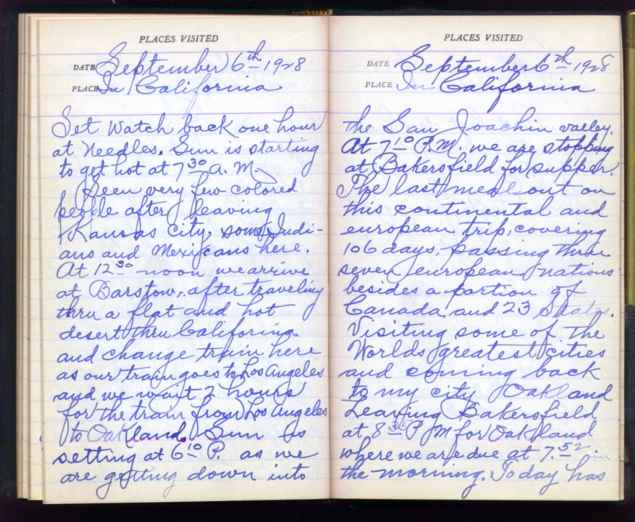 PLACES VISITED
DATE September 6th 1928
PLACE In California
Set watch back one hour
at Needles. Sun is starting
to get hot at 7 30 A. M.
Seen very few colored
people after leaving
Kansas City, some Indi-
ans and Mexicans here.
At 12 30 noon we arrive
at Barstow, after traveling
thru a flat and hot
desert thru California
and change train here
as our train goes to Los Angeles
and we wait 2 hours
for the train from Los Angeles
to Oakland. Sun is
setting at 6 10 P. as we
are getting down into
PLACES VISITED
DATE September 6th 1928
PLACE In California
the San Joachin valley.
At 7 10 P.M. we are stopping
at Bakersfield for supper.
The last meal out on
this continental and
european trip, covering
106 days, passing thru
seven european nations
besides a portion of
Canada and 23 States.
Visiting some of the
Worlds greatest cities
and coming back
to my city Oakland
Leaving Bakersfield
at 8 30 P M for Oakland
where we are due at 7.52 in
the morning. Today has